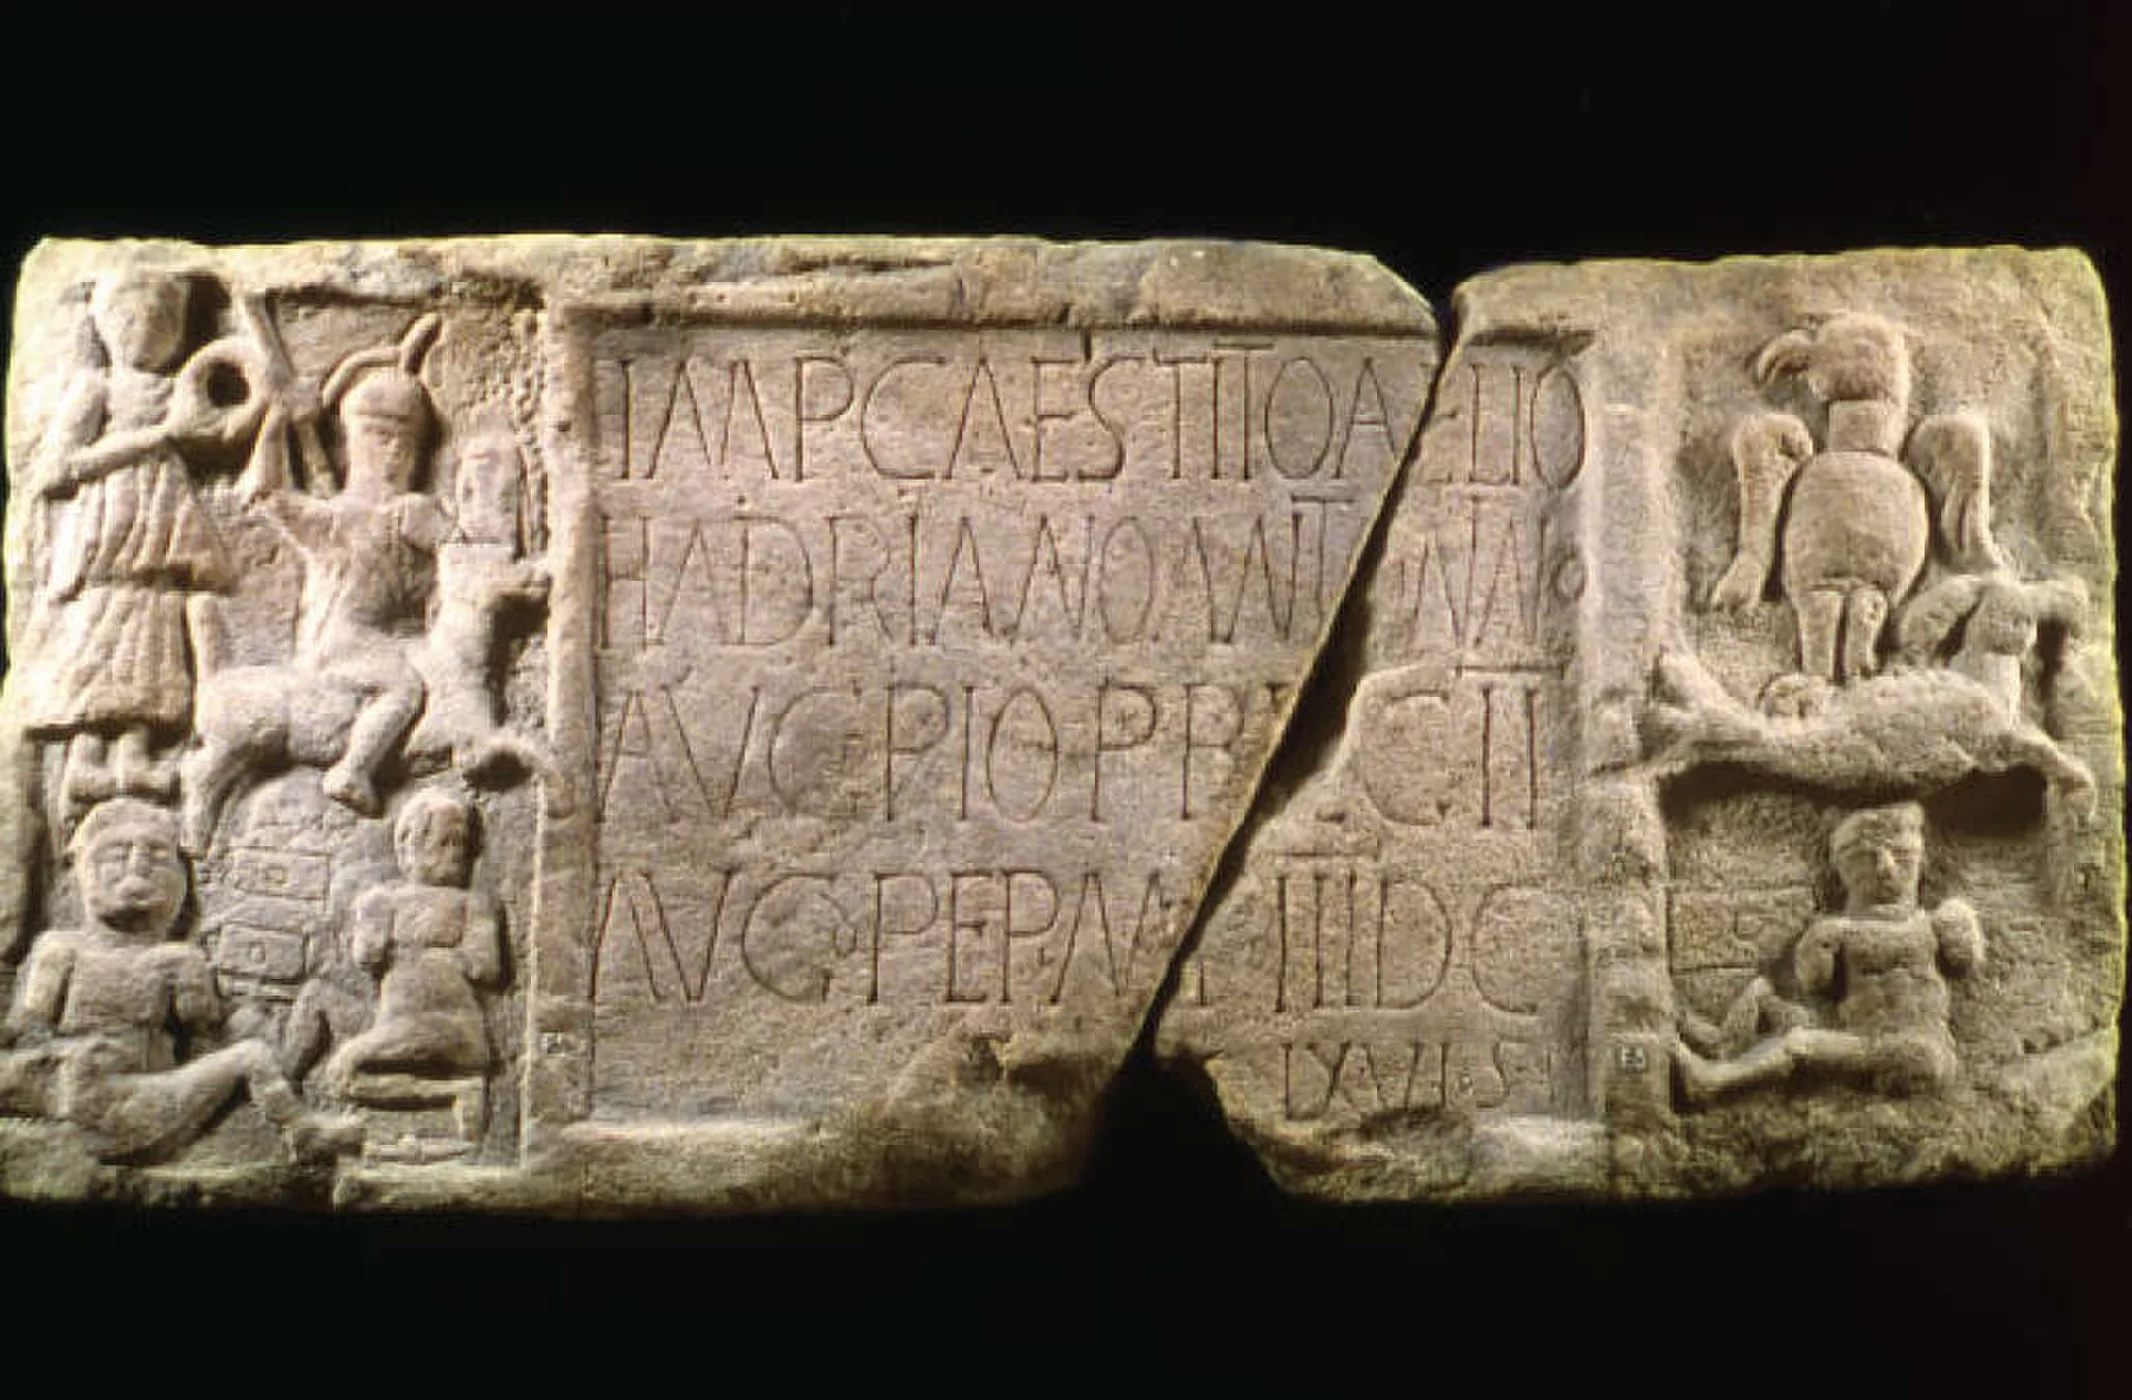 IMP CAES TITO AELIO
HADRIANO ANTONINO
AVG PIO P P LEG II
AVG PEP M P III DC
LXVI S